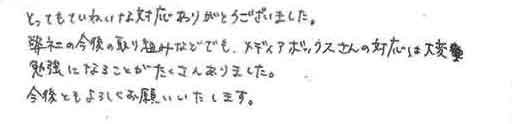 とってもていねいな対応ありがとうございました。
弊社の今後の取り組みなどでも、メディアボックスさんの対応は大変
勉強になることがたくさんありました。
今後ともよろしくお願いいたします。